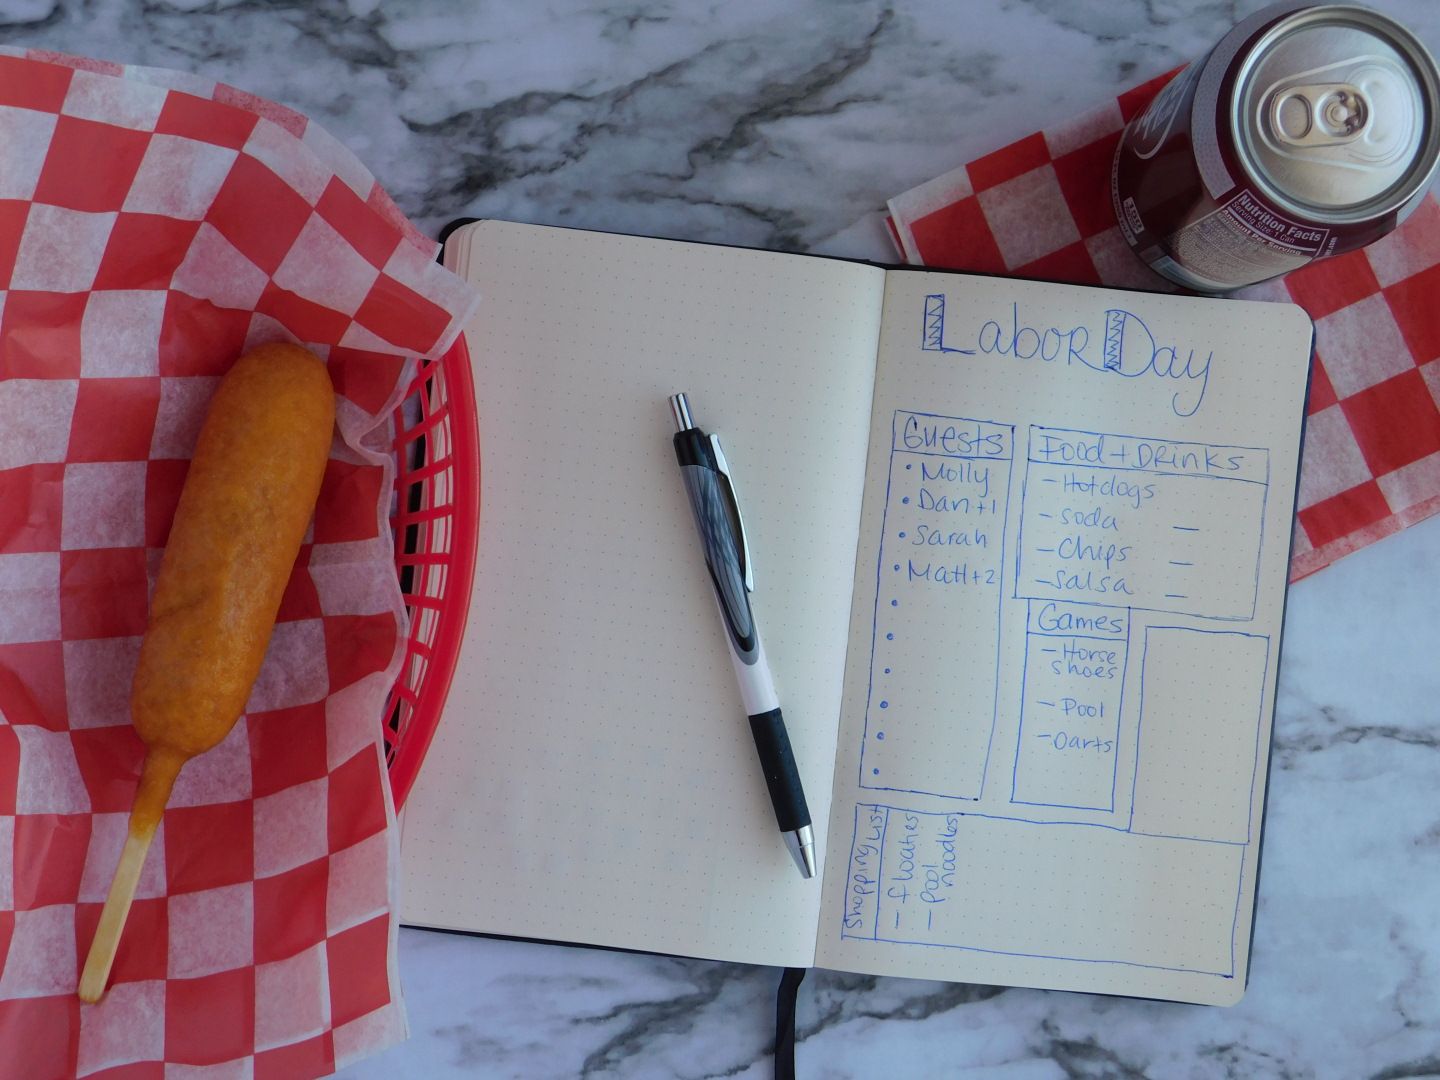 Labor Day
Guests
• Molly
• Dan+1
• Sarah
• Matt+2
Food + Drinks
- Hotdogs
- Soda
- Chips
- Salsa
Games
- Horse
shoes
- Pool
- Darts
Shopping List
- floaties
- pool
noodles
Nutrition Facts
Serving Size: 1 Can
Amount Per Serving